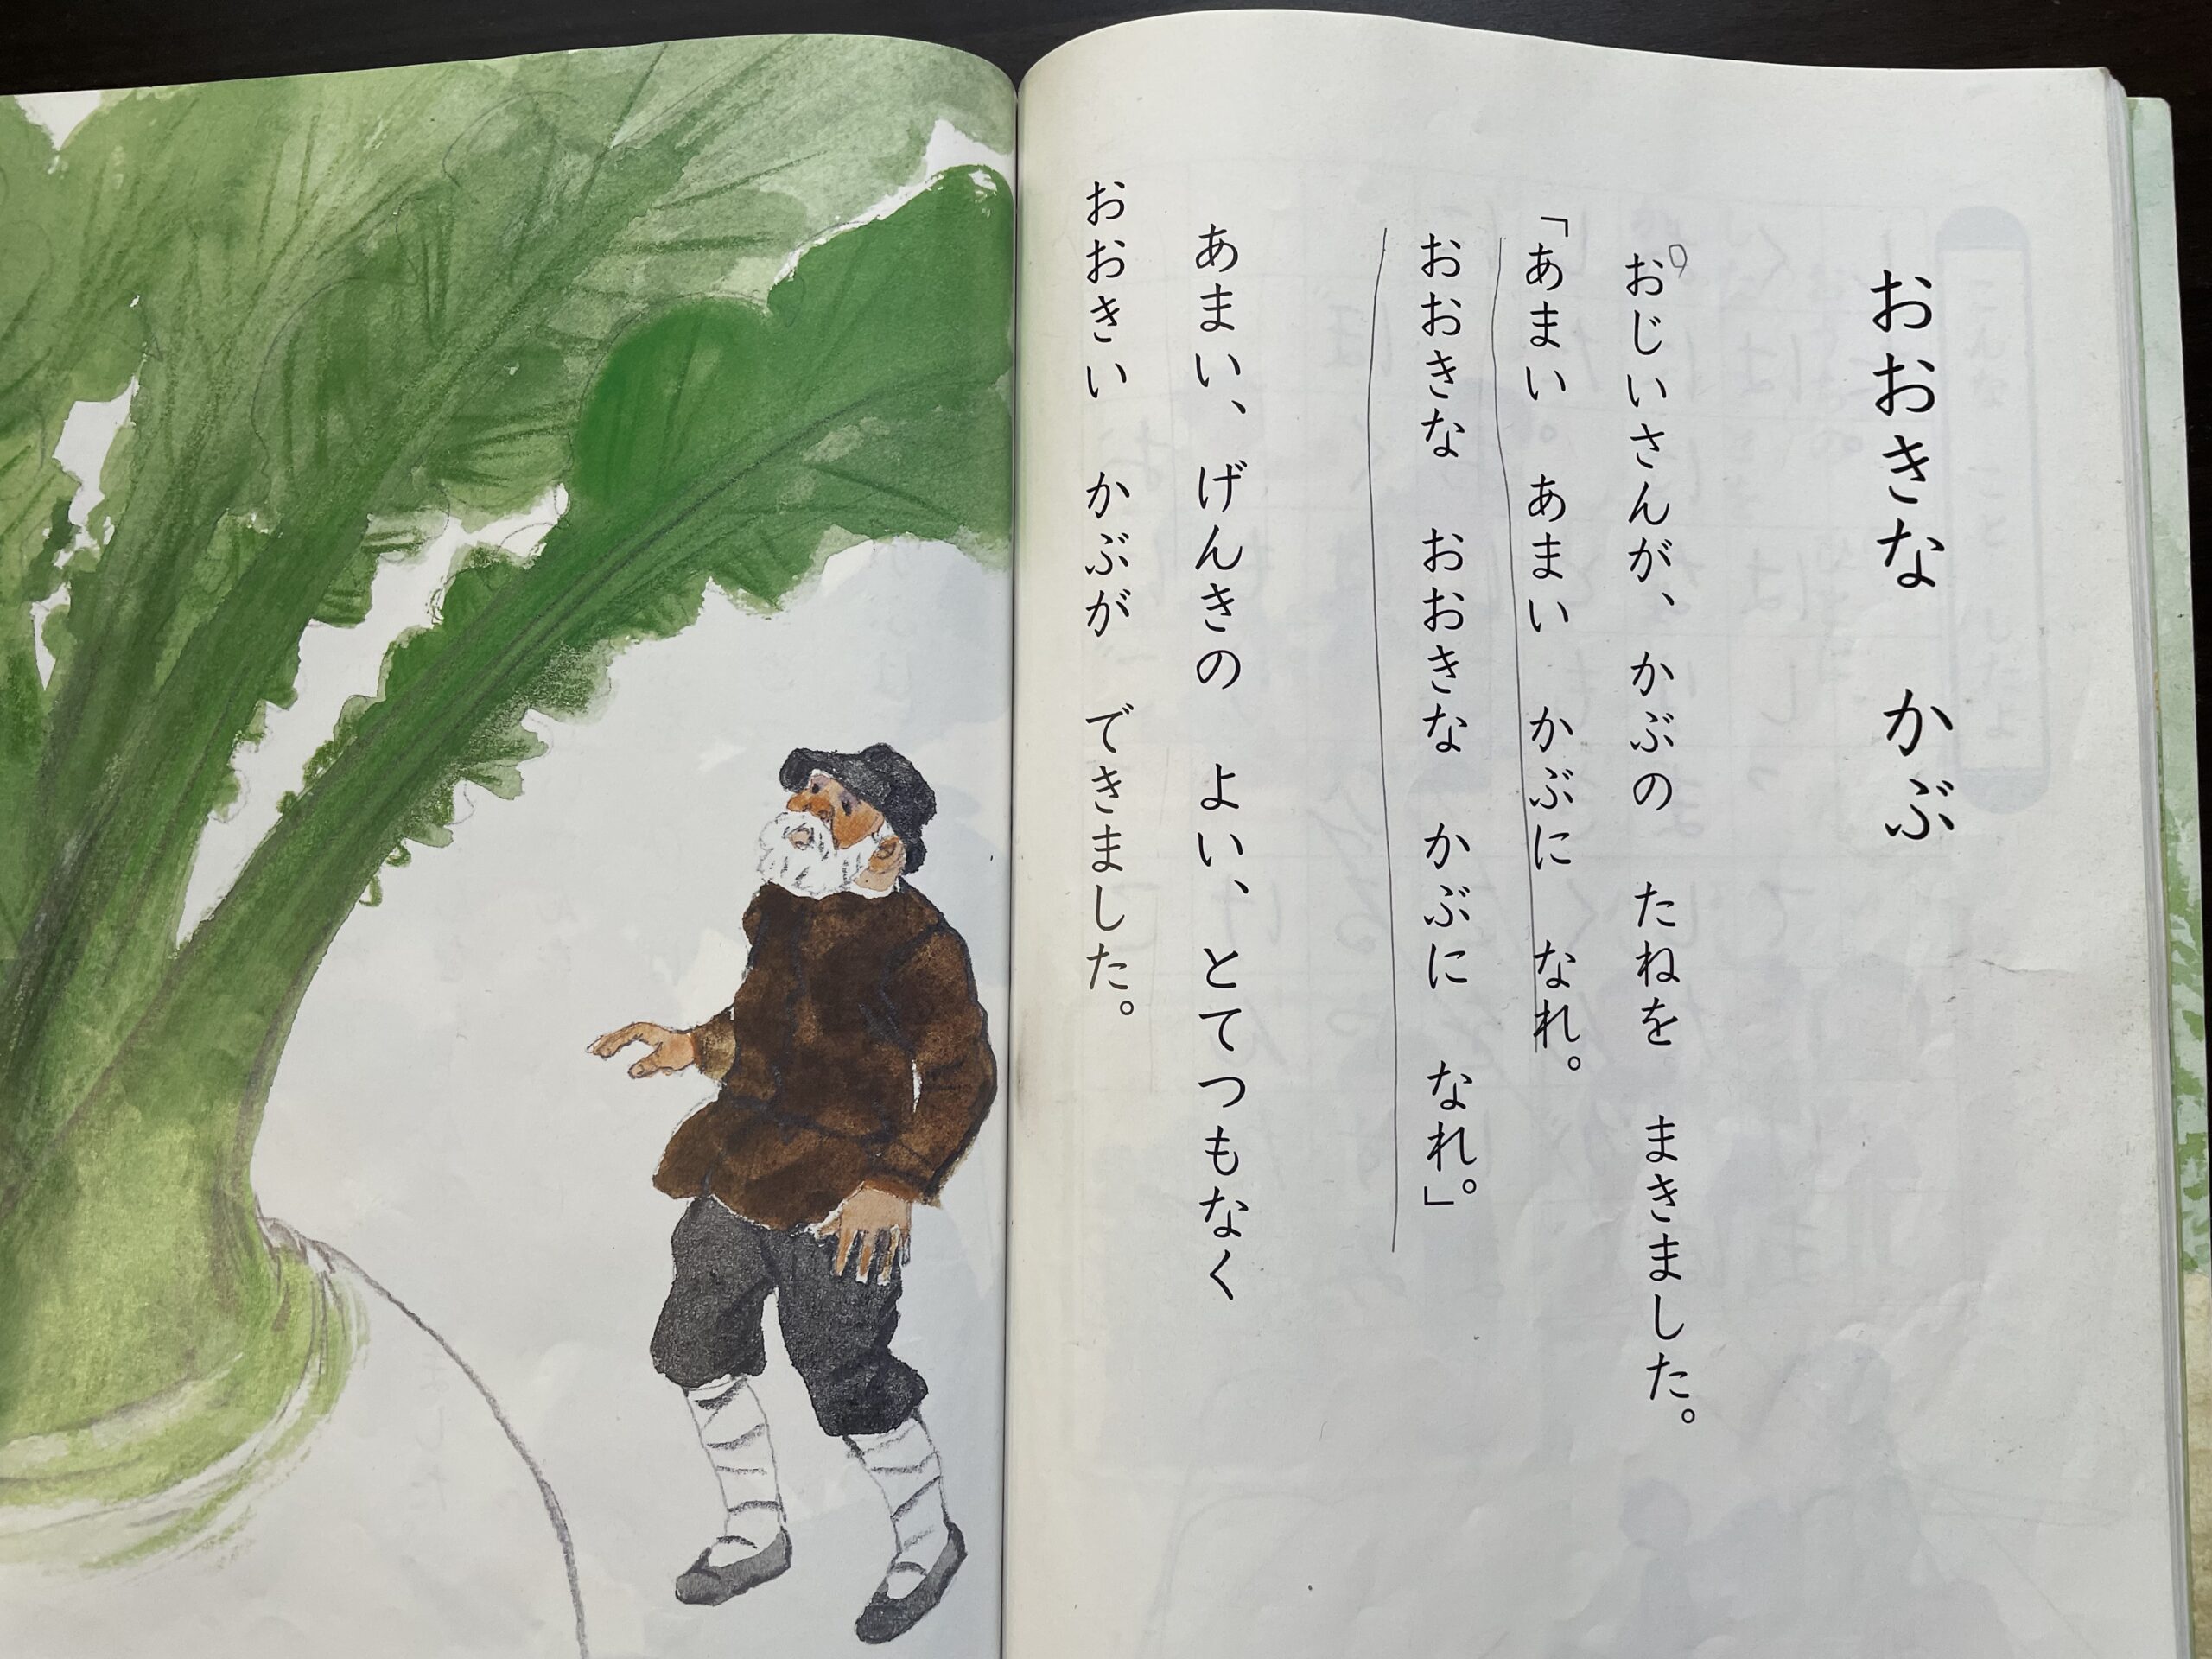 おおきな　かぶ
おじいさんが、　かぶの　たねを　まきました。
「あまい　あまい　かぶに　なれ。
おおきな　おおきな　かぶに　なれ。」
あまい、　げんきの　よい、　とてつもなく
おおきい　かぶが　できました。